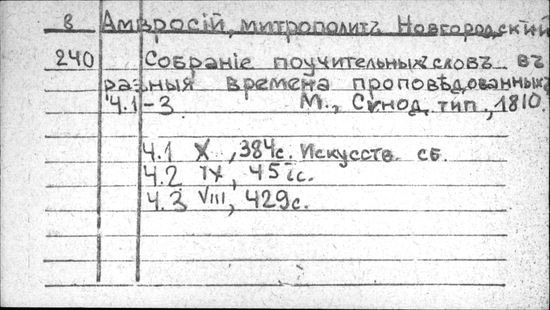 8 Амвросій, митрополитъ Новгородский
240 Собраніе поучительныхъ словъ въ
разныя времена проповѣданныхъ
Ч.1-3 М., Синод. тип., 1810.
Ч.1 X, 384с. Искусств. сб.
Ч.2 IX, 451с.
Ч.3 VIII, 429с.